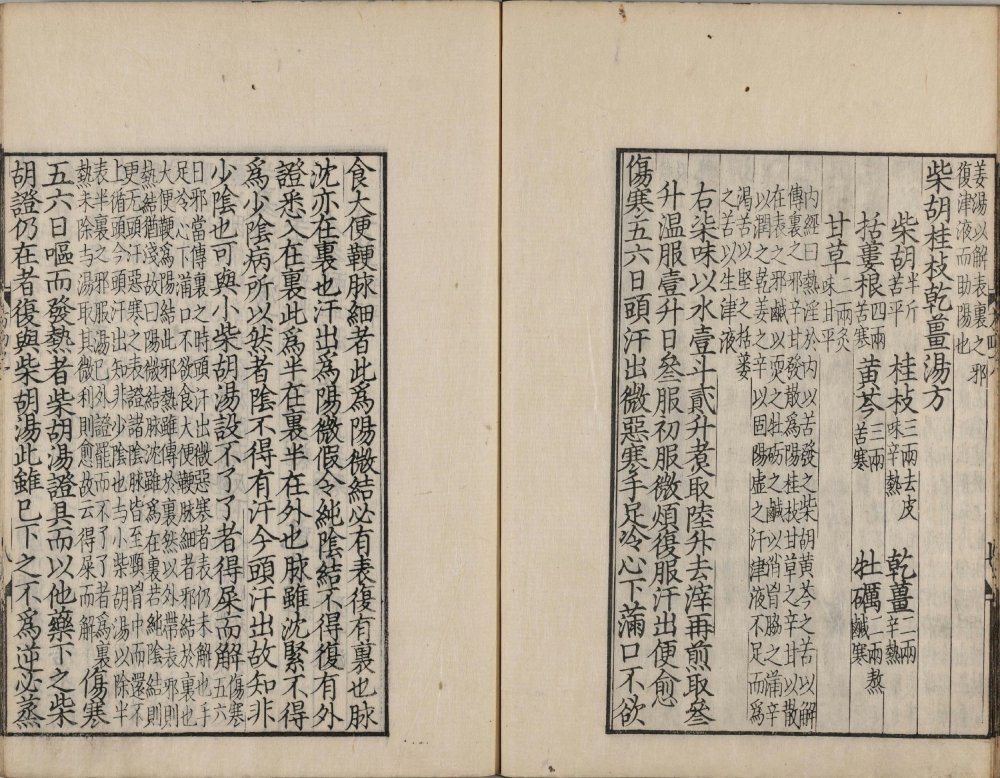 姜湯以解表裏之邪
復津液而助陽也
柴胡桂枝乾薑湯方
柴胡半斤苦平 桂枝三兩去皮味辛熱 乾薑二兩辛熱
括蔞根四兩苦寒 黄芩三兩苦寒 牡礪二兩熬鹹寒
甘草二兩炙味甘平
内經曰熱淫於内以苦發之柴胡黄芩之苦以解
傳裏之邪辛甘發散爲陽桂枝甘草之辛甘以散
在表之邪鹹以耎之牡砺之鹹以消胷脇之滿辛
以潤之乾姜之辛以固陽虚之汗津液不足而爲
渇苦以堅之栝蒌
之苦以生津液
右柒味以水壹斗貳升煑取陸升去滓再煎取叄
升温服壹升日叄服初服微煩復服汗出便愈
傷寒五六日頭汗出微惡寒手足冷心下滿口不欲
食大便鞕脉細者此爲陽微結必有表復有裏也脉
沈亦在裏也汗出爲陽微假令純陰結不得復有外
證悉入在裏此爲半在裏半在外也脉雖沈緊不得
爲少陰病所以然者陰不得有汗今頭汗出故知非
少陰也可與小柴胡湯設不了了者得屎而解傷寒五六
日邪當傳裏之時頭汗出微惡寒者表仍未解也手
足冷心下滿口不欲食大便鞕脉細者邪結於裏也
大便鞕爲陽結此邪熱雖傳於裏然以外帶表邪則
熱結猶浅故曰陽微結脉沈雖爲在裏若純陰結則
更无頭汗惡寒之表證諸陰脉皆至頸胷中而還不
上循頭今頭汗出知非少陰也与小柴胡湯以除半
表半裏之邪服湯已外證罷而不了了者爲裏
熱未除与湯取其微利則愈故云得屎而解 傷寒
五六日嘔而發熱者柴胡湯證具而以他藥下之柴
胡證仍在者復與柴胡湯此雖已下之不爲逆必蒸